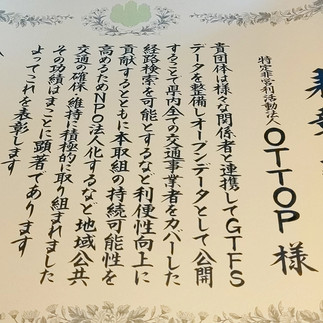 表彰
特定非営利活動法人
OTTOP 様
貴団体は様々な関係者と連携してGTFS
データを整備しオープンデータとして公開
することで県内全ての交通事業者をカバーした
経路検索を可能とするなど利便性向上に
貢献するとともに本取組の持続可能性を
高めるためNPO法人化するなど地域公共
交通の確保 維持に積極的に取り組まれました
その功績はまことに顕著であります
よってこれを表彰します